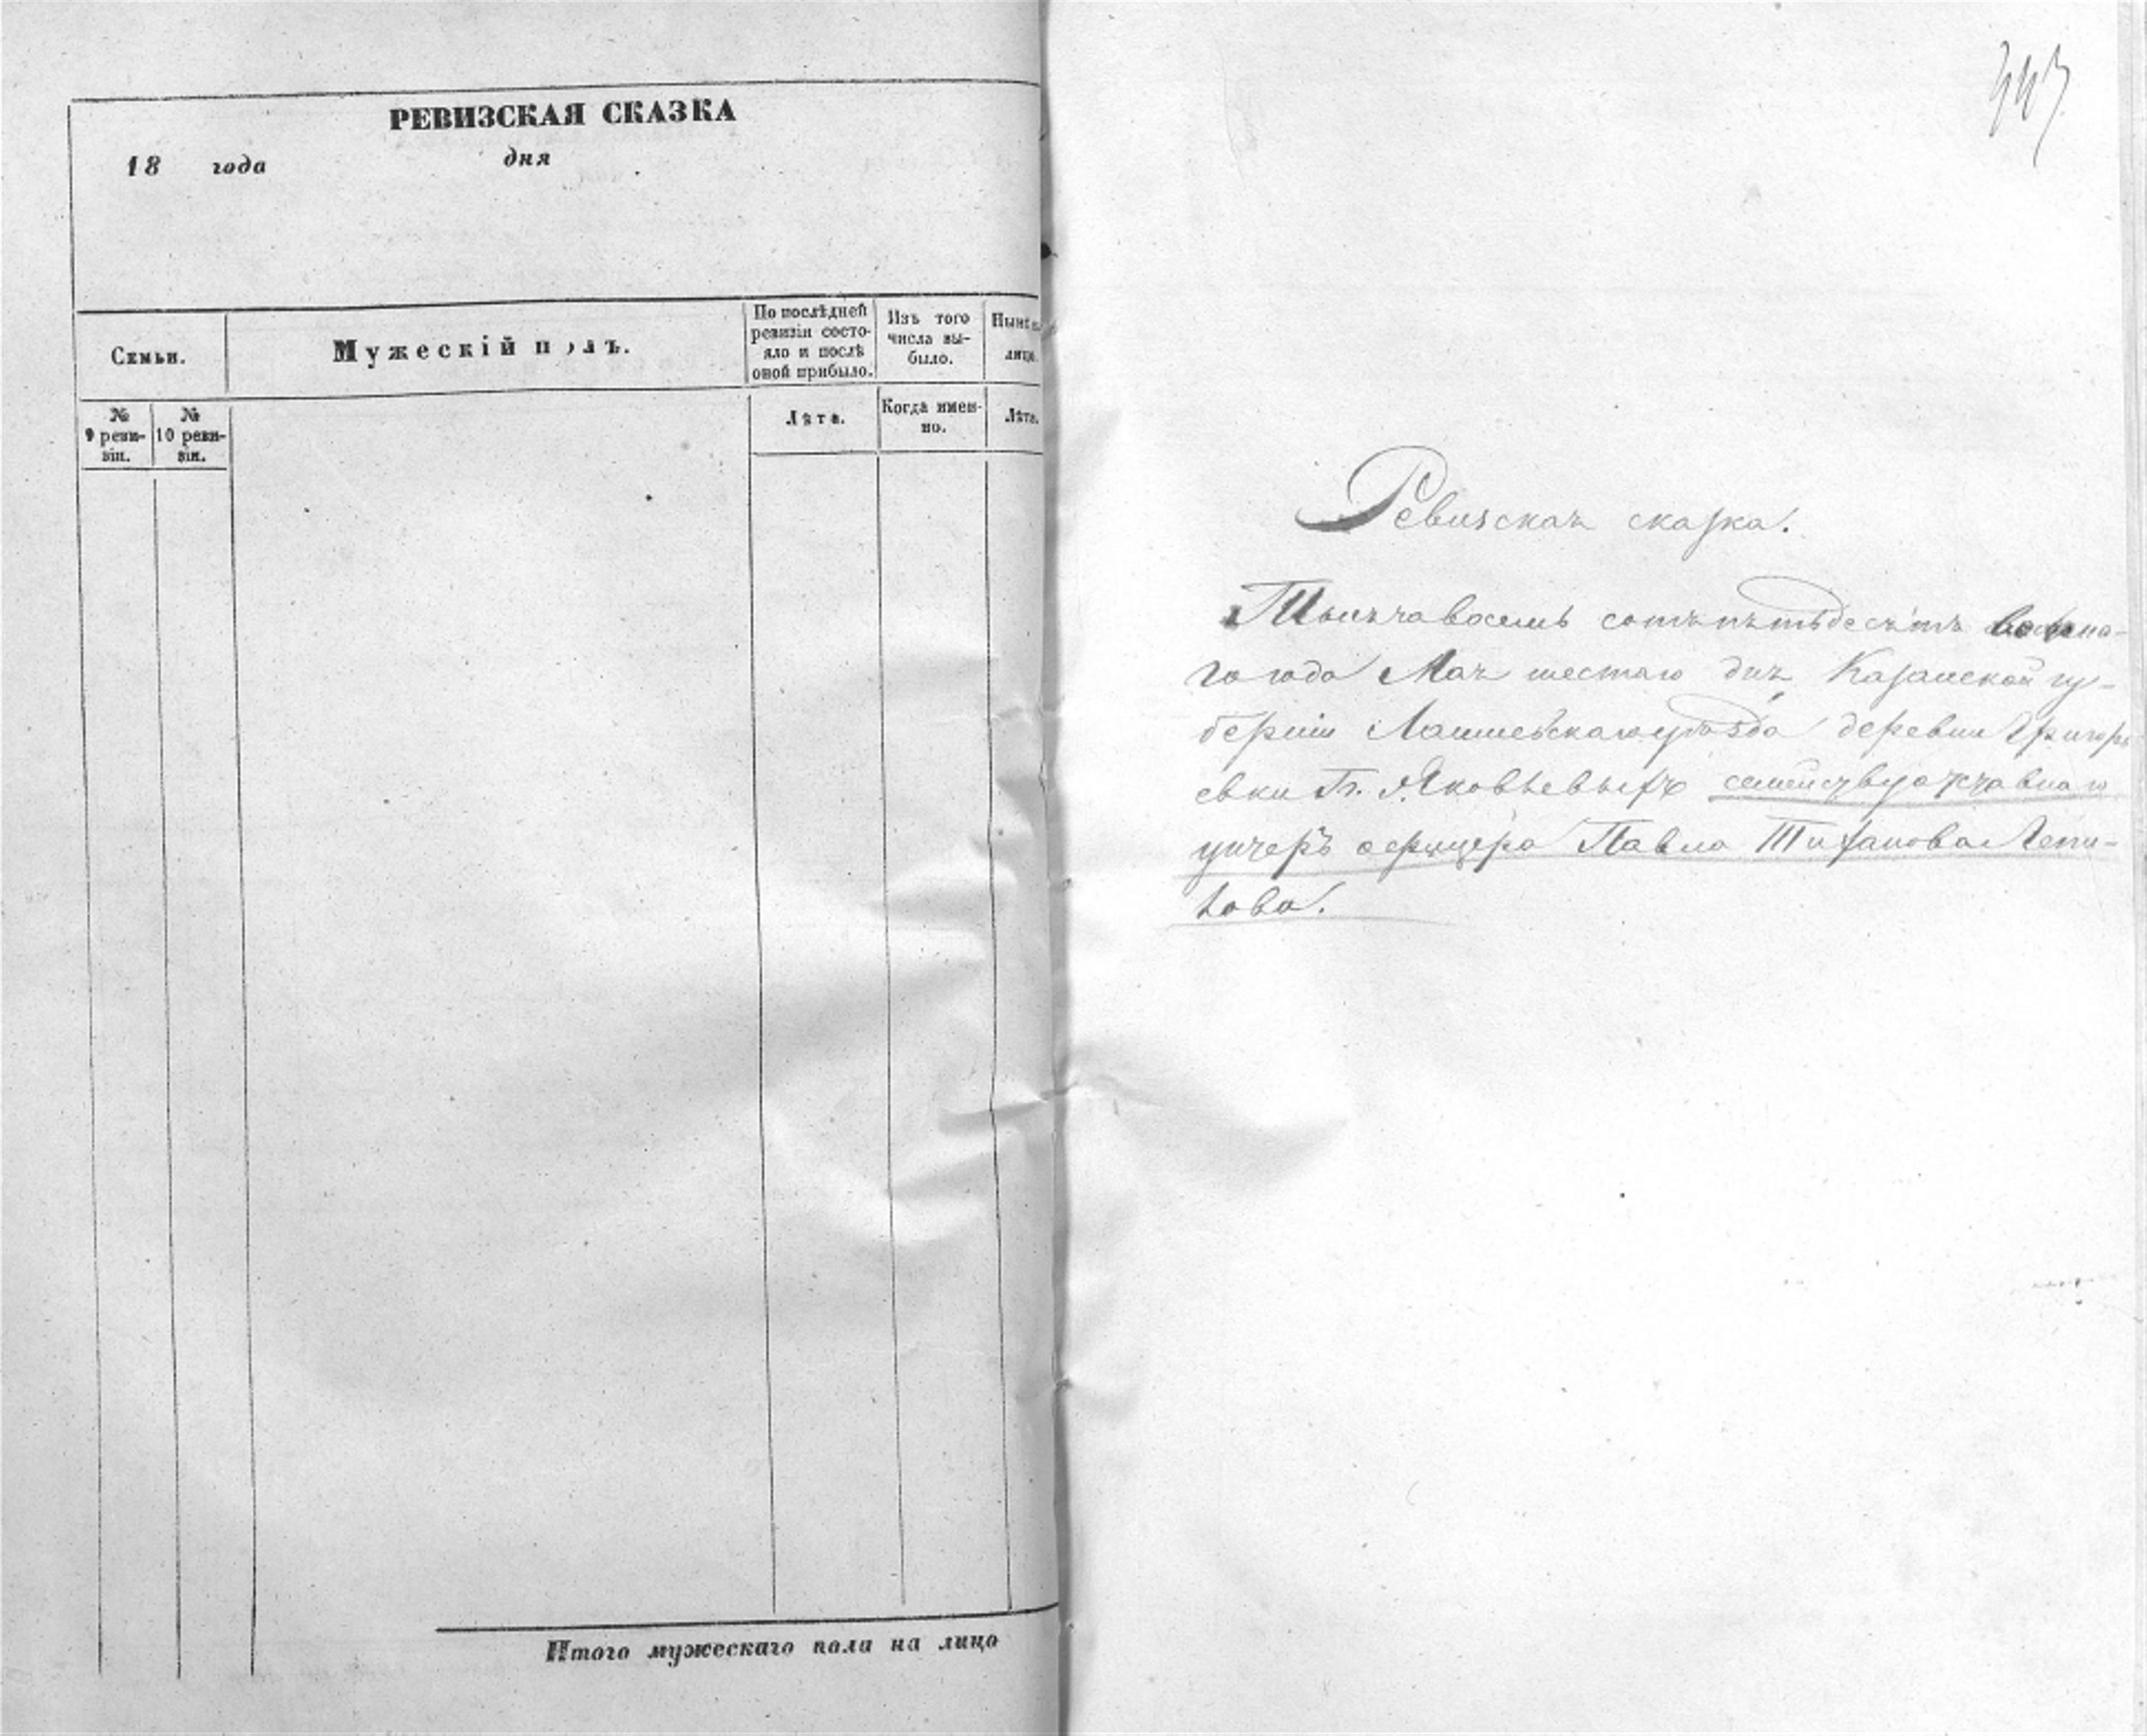 РЕВИЗСКАЯ СКАЗКА
18 года дня
Семьи.
Мужескій полъ.
По послѣдней ревизіи состояло и послѣ оной прибыло.
Изъ того числа выбыло.
Нынѣ лицо.
№ 9 ревизіи.
№ 10 ревизіи.
Лѣта.
Когда именно.
Лѣта.
Итого мужескаго пола на лицо
Ревизская сказка.
Тысяча восемь сотъ пятьдесятъ восьма-
го года Мая шестаго дня Казанской гу-
берніи Лаишевскаго уѣзда деревни Григорь-
евки Гг. Яковлевыхъ
унтеръ офицера Павла Тифанова Чепи-
лова.